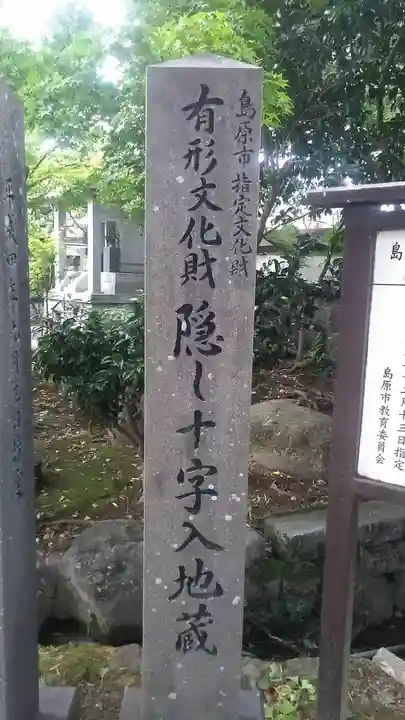 島原市指定文化財
有形文化財 隠し十字入地蔵
島
月十三日指定
島原市教育委員会
平成四年